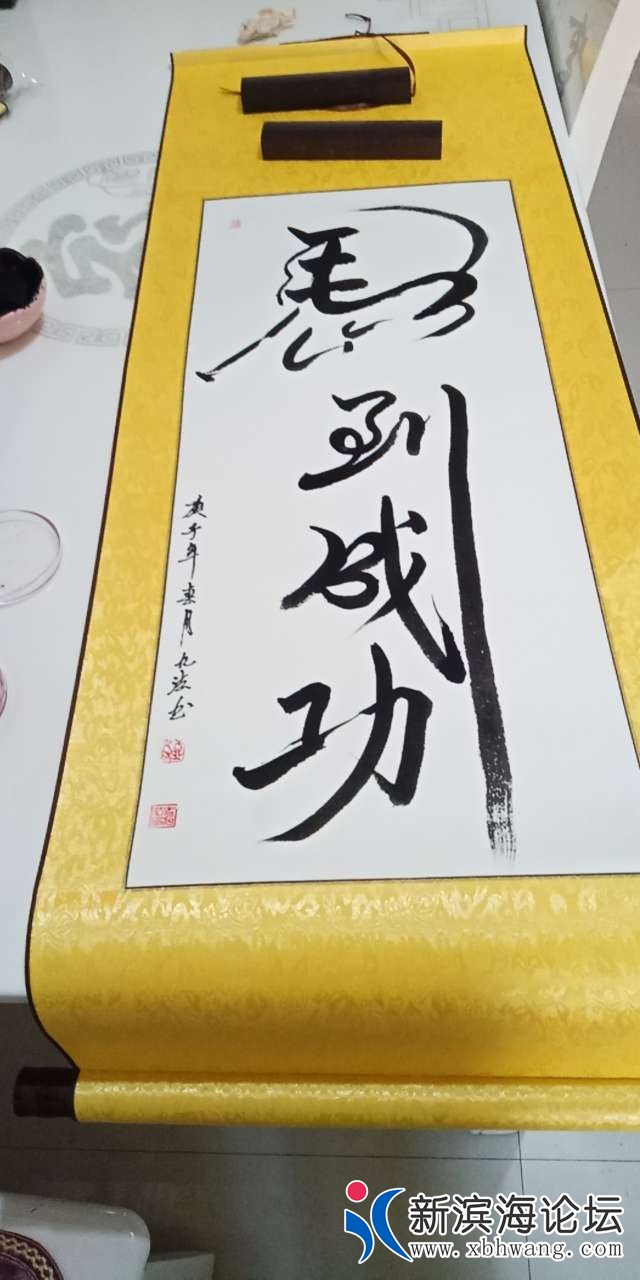 馬到成功
庚子年月九波书
新滨海论坛
www.xbhwang.com